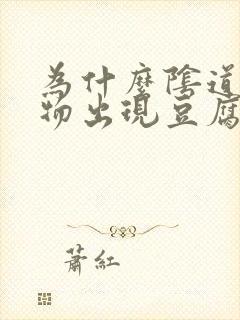 為什麼陰道
物出現豆腐
蕭紅